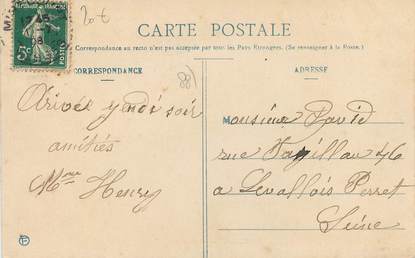 20 €
CARTE POSTALE
La Correspondance au recto n'est pas acceptée par tous les Pays Etrangers. (Se renseigner à la Poste.)
CORRESPONDANCE
ADRESSE
5c
88
Arrivée jeudi soir
amitiés
Mme Henry
Monsieur David
rue 46
a Levallois Perret
Seine